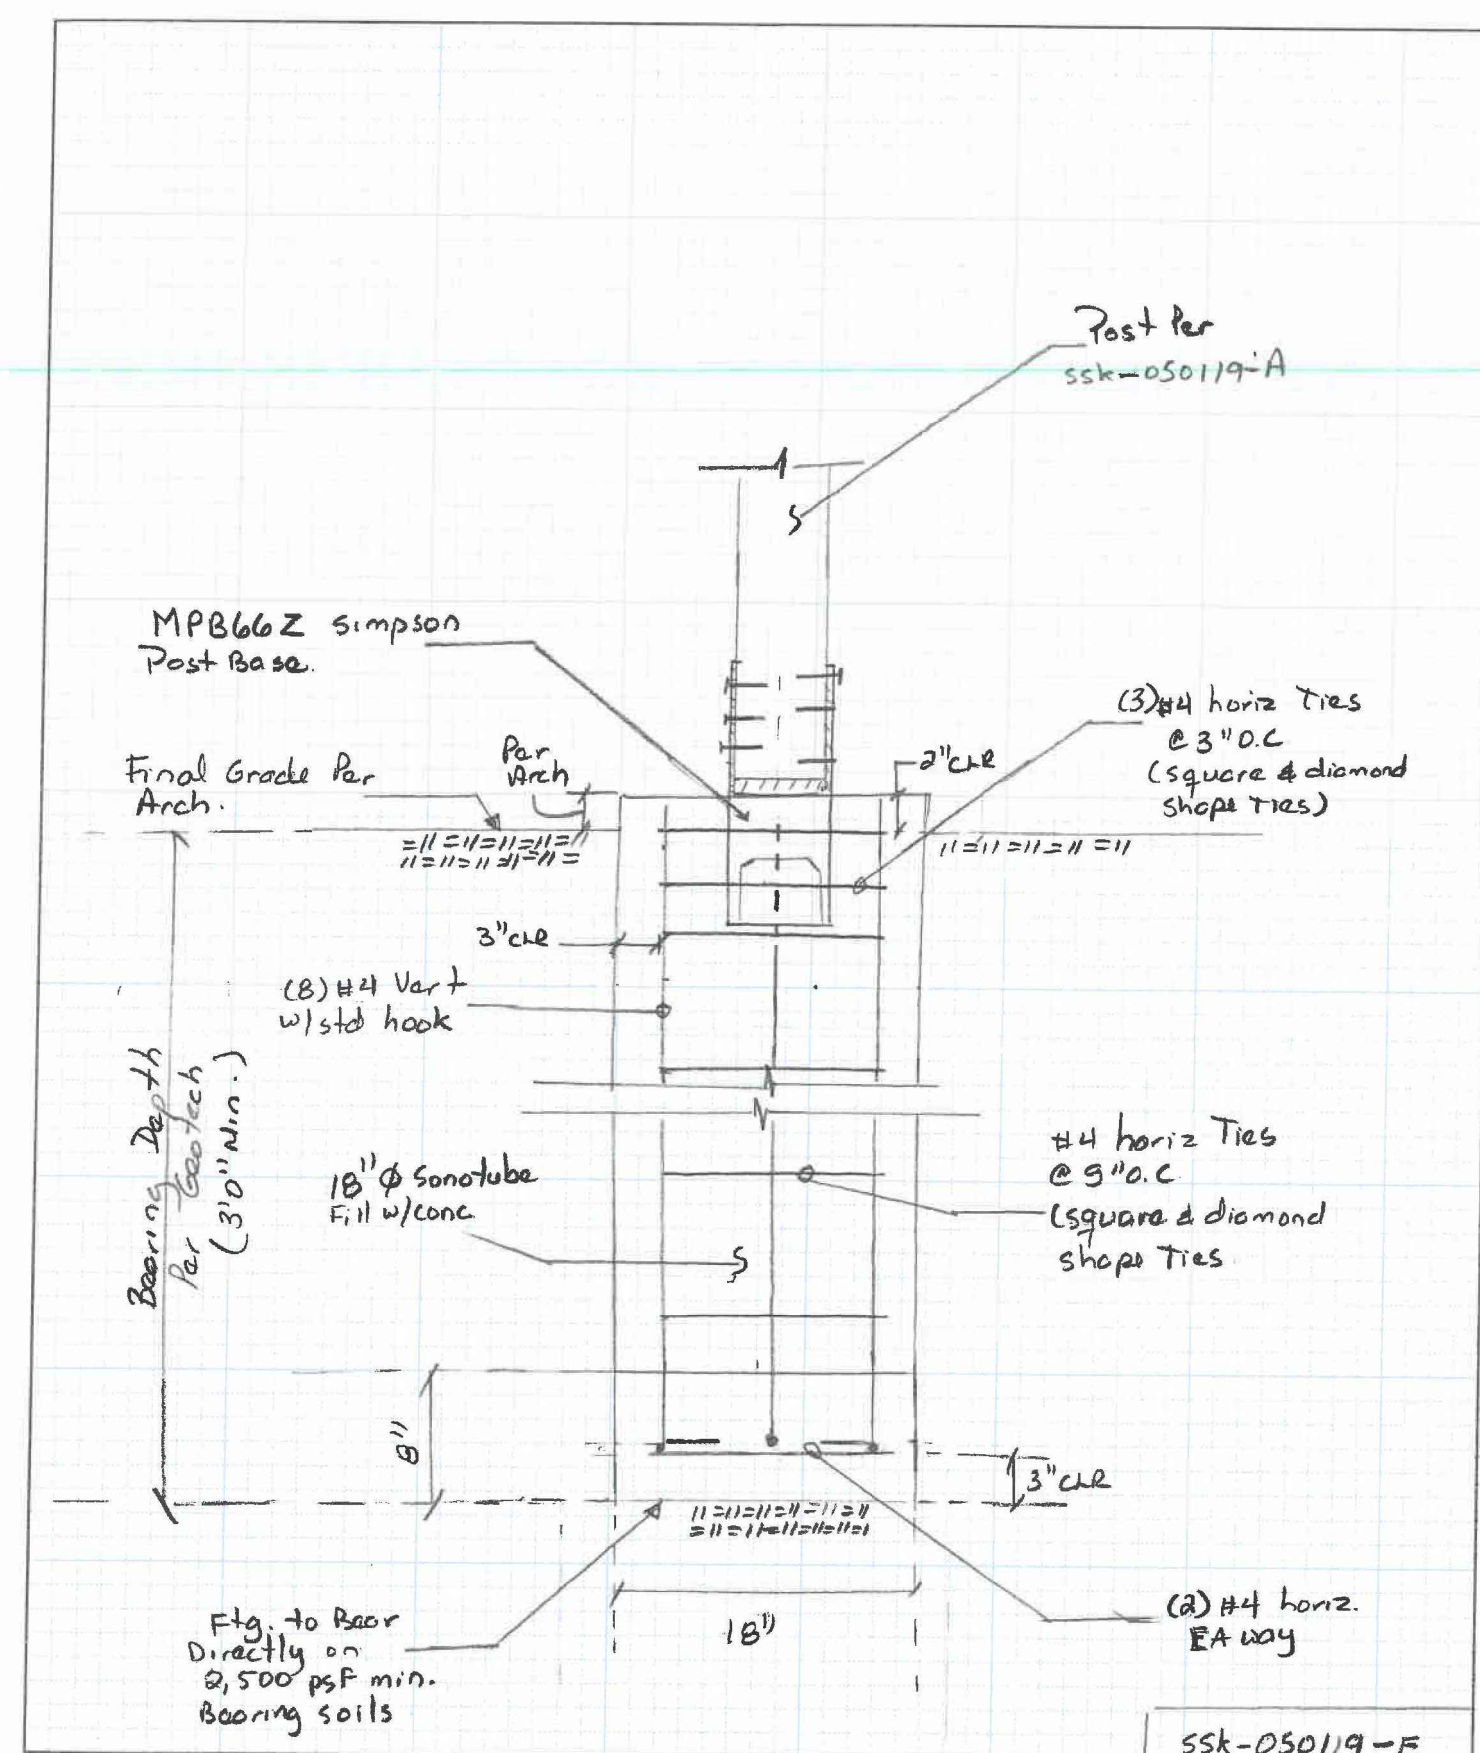 Post Per
ssk-050119-A
MPB66Z simpson
Post Base.
(3)#4 horiz Ties
@ 3" O.C
(square & diamond
shape Ties)
Final Grade Per
Arch.
Per
Arch
2" CLR
3" CLR
(8) #4 Vert
w/std hook
Bearing Depth
Per Geotech
(3'0" Min.)
18" Ø Sonotube
Fill w/conc
#4 horiz Ties
@ 9" O.C
(square & diamond
shape Ties
8"
3" CLR
Ftg. to Bear
Directly on
2,500 psf min.
Bearing soils
18"
(2) #4 horiz.
EA way
SSK-050119-F